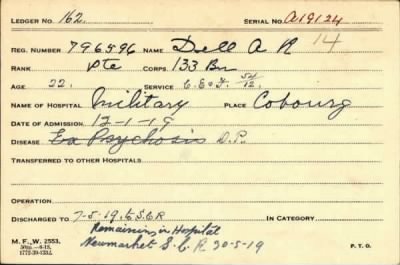 LEDGER NO. 162. SERIAL NO. A19124
REG. NUMBER 796596 NAME Dell A R 14
RANK Pte CORPS. 133 Bn
AGE 22. SERVICE C.E.F. 54/12.
NAME OF HOSPITAL Military PLACE Cobourg
DATE OF ADMISSION 12-1-19
DISEASE Ex Psychosis D.P.
TRANSFERRED TO OTHER HOSPITALS
OPERATION
DISCHARGED TO 7-5-19. IN CATEGORY
Remaining in Hospital
Newmarket S.C.R 20-5-19
M. F. W. 2553.
1772-39-1332.
P. T. O.